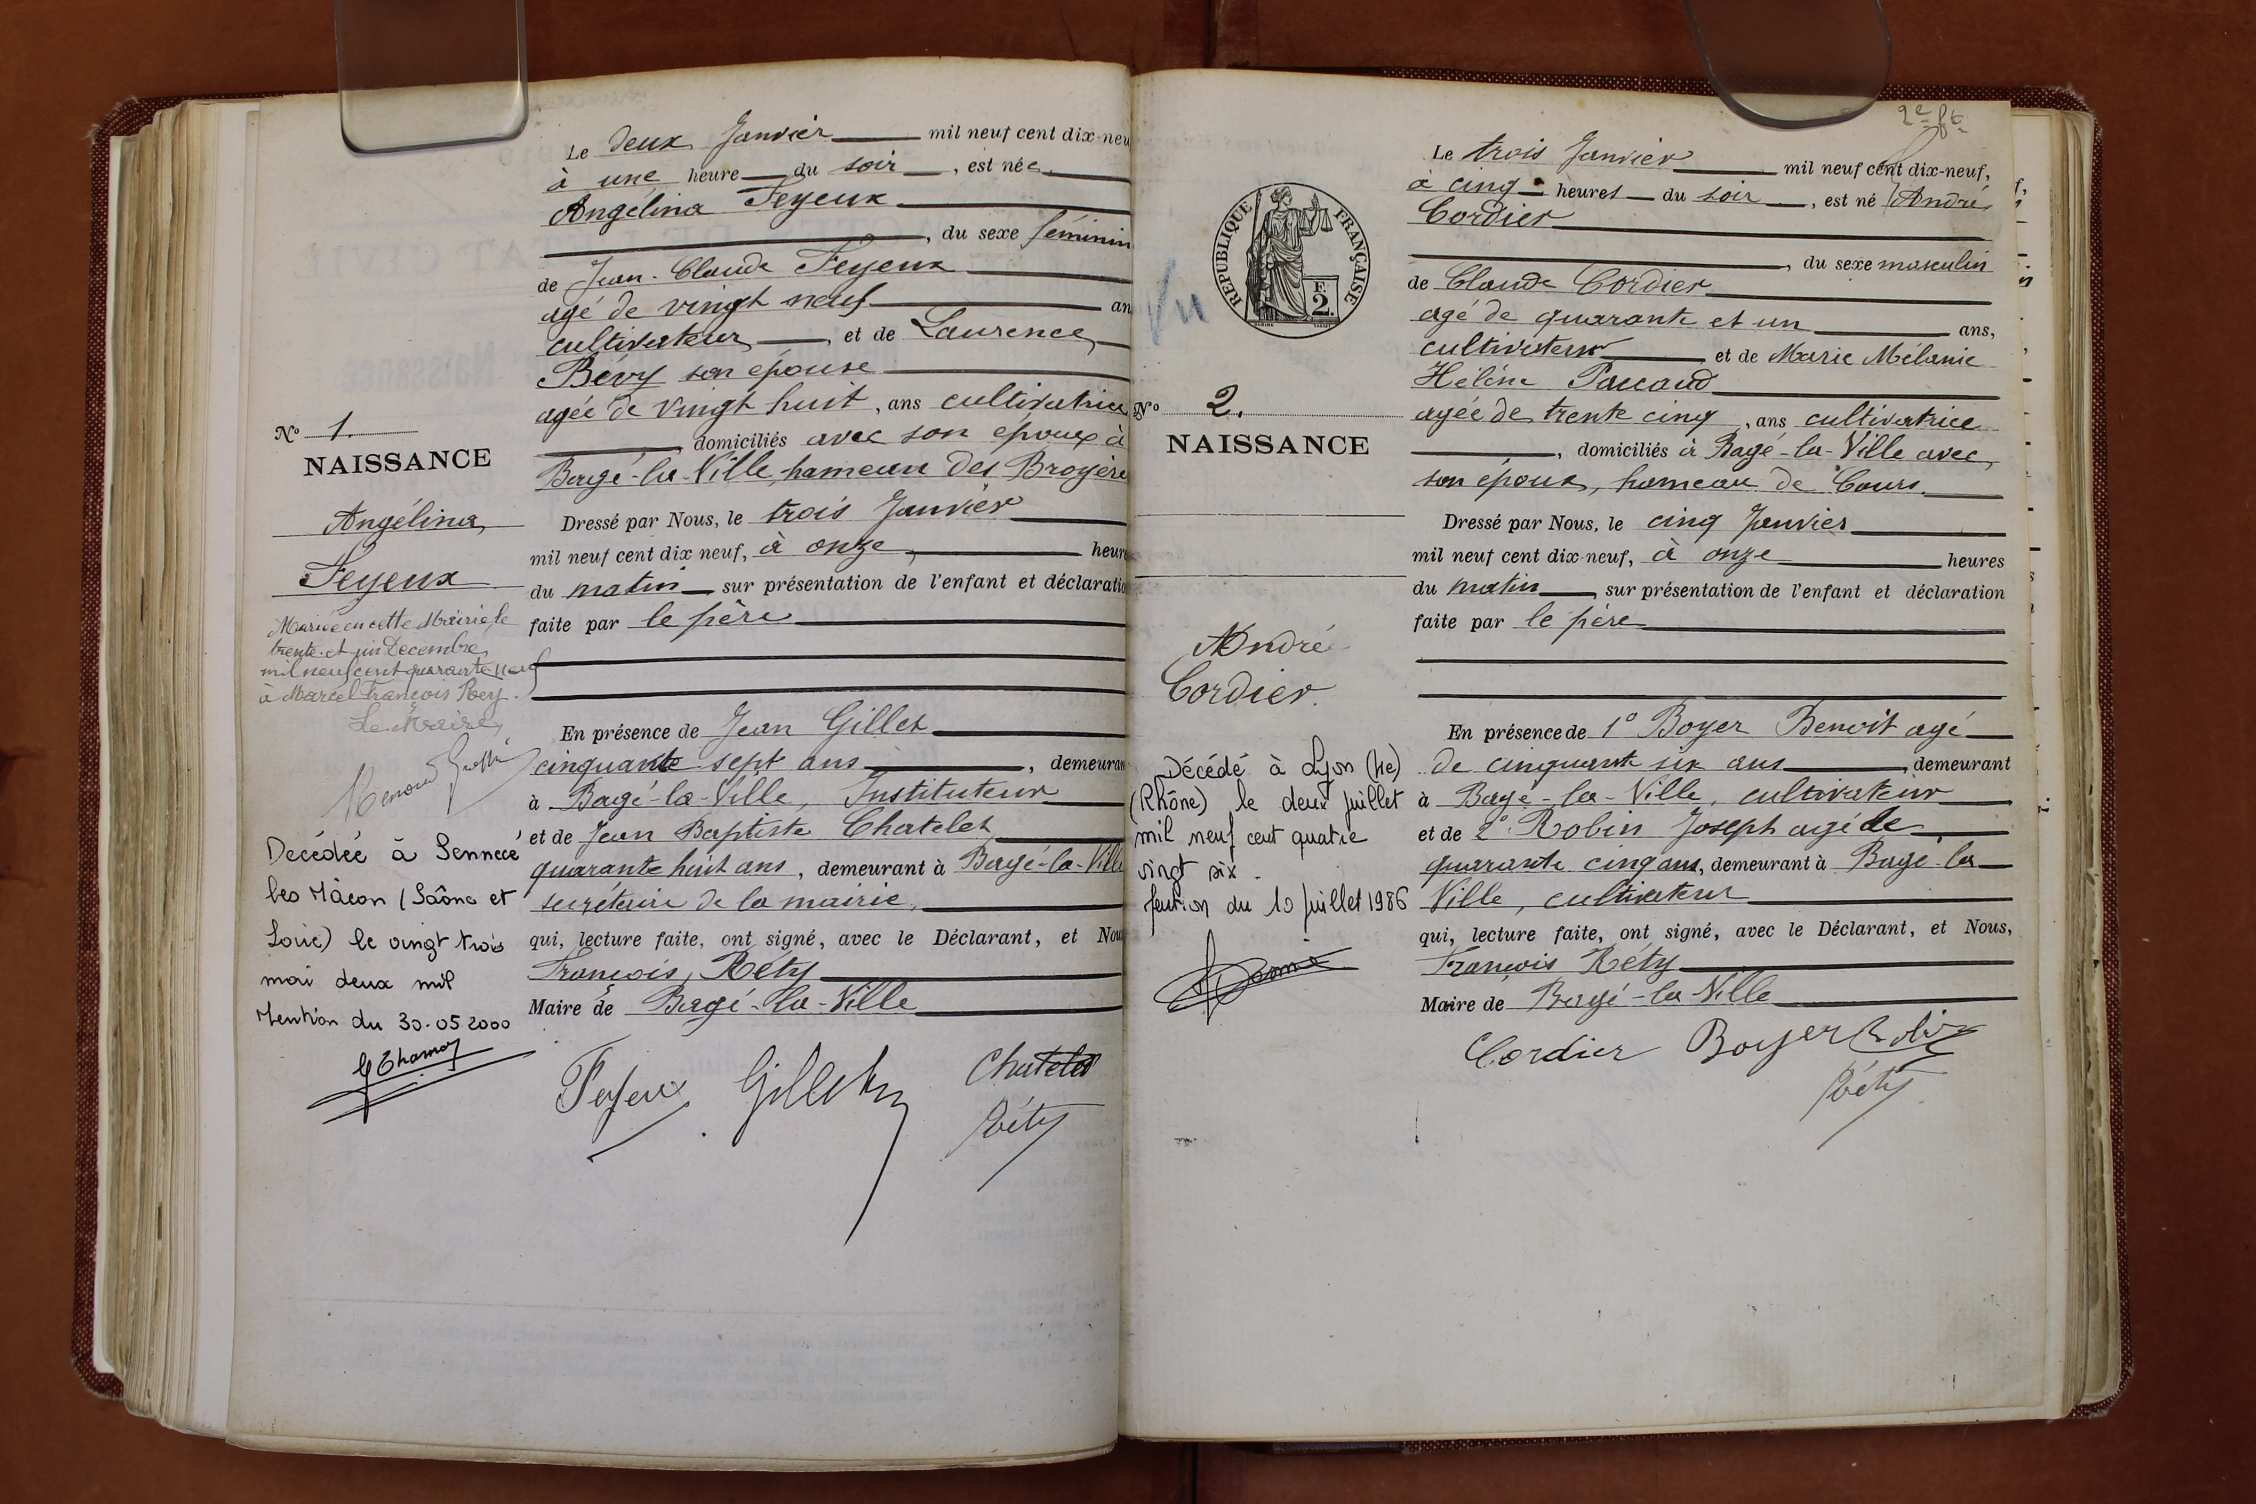 Le deux Janvier mil neuf cent dix-neu
à une heure du soir, est née
Angélina Feyeux
, du sexe féminin
de Jean-Claude Feyeux
agé de vingt neuf an
cultivateur, et de Laurence
Bévy son épouse
agée de vingt huit, ans cultivatrice
domiciliés avec son époux à
Bagé-la-Ville, hameau des Broyère
Dressé par Nous, le trois Janvier
mil neuf cent dix neuf, à onze heure
du matin sur présentation de l'enfant et déclaratio
faite par le père
En présence de Jean Gillet
cinquante sept ans, demeuran
à Bagé-la-Ville, Instituteur
et de Jean Baptiste Chatelet
quarante huit ans, demeurant à Bagé-la-Ville
secrétaire de la mairie,
qui, lecture faite, ont signé, avec le Déclarant, et Nou
François Réty
Maire de Bagé-la-Ville
Feyeux Gillet Chatelet
Réty
No 1.
NAISSANCE
Angélina
Feyeux
Mariée en cette Mairie le
trente et un Decembre
mil neuf cent quarante neuf
à Marcel François Rey.
Le Maire,
Décédée à Sennecé
les Mâcon (Saône et
Loire) le vingt trois
mai deux mil
Mention du 30.05.2000
2e ft
Vu
REPUBLIQUE FRANÇAISE
F.
2.
No 2.
NAISSANCE
André
Cordier.
Décédé à Lyon (4e)
(Rhône) le deux juillet
mil neuf cent quatre
vingt six.
Mention du 10 juillet 1986
Le trois Janvier mil neuf cent dix-neuf,
à cinq heures du soir, est né André
Cordier
, du sexe masculin
de Claude Cordier
agé de quarante et un ans,
cultivateur et de Marie Mélanie
Hélène Paccaud
agée de trente cinq, ans cultivatrice
, domiciliés à Bagé-la-Ville avec
son époux, hameau de Cours.
Dressé par Nous, le cinq Janvier
mil neuf cent dix-neuf, à onze heures
du matin, sur présentation de l'enfant et déclaration
faite par le père
En présence de 1o Boyer Benoit agé
de cinquante six ans, demeurant
à Bagé-la-Ville, cultivateur
et de 2o Robin Joseph agé de
quarante cinq ans, demeurant à Bagé-la
Ville, cultivateur
qui, lecture faite, ont signé, avec le Déclarant, et Nous,
François Réty
Maire de Bagé-la-Ville
Cordier Boyer Robin
Réty